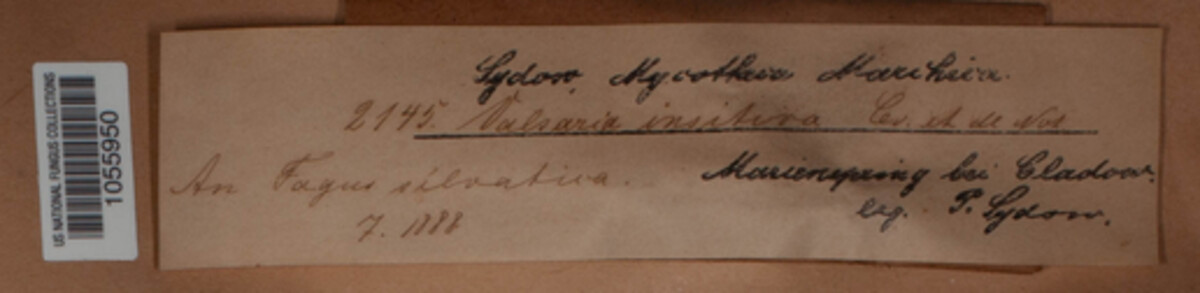 US NATIONAL FUNGUS COLLECTIONS
1055950
Sydow, Mycotheca Marchica.
2145. Valsaria insitiva Ces. et de Not
An Fagus silvatica.
7. 1888
Marienspring bei Cladow.
leg. P. Sydow.